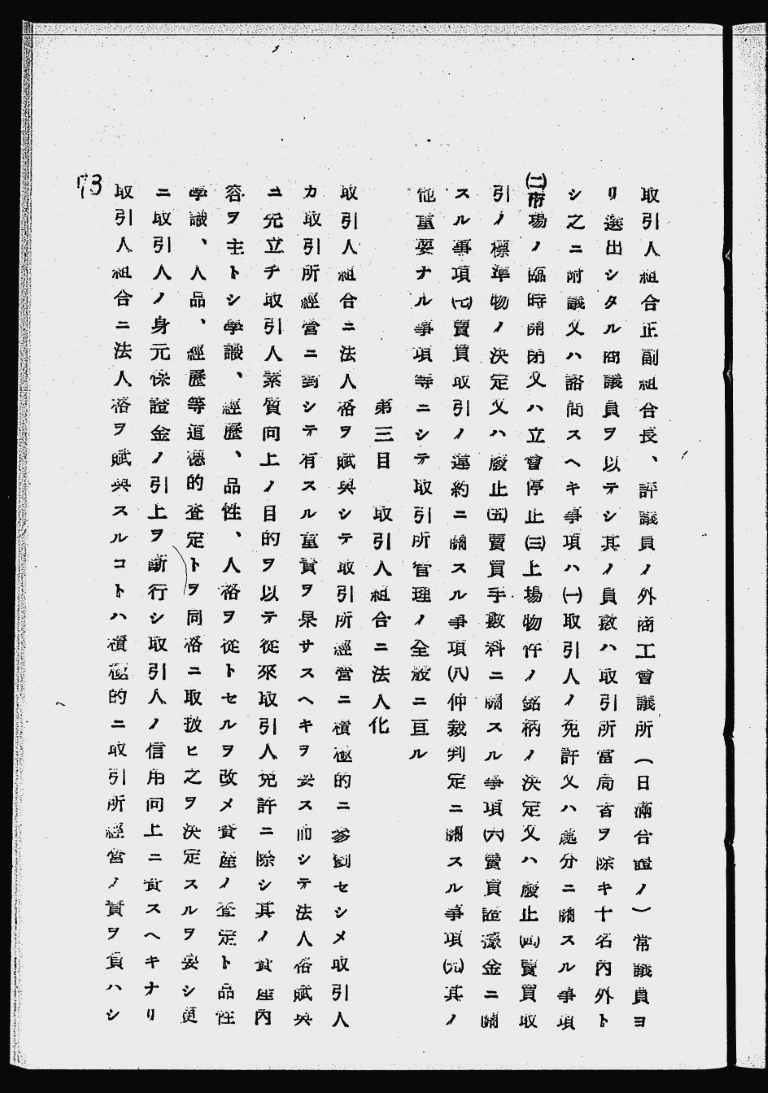 取引人組合正副組合長、評議員ノ外商工會議所（日滿合同ノ）常議員ヨ
リ選出シタル商議員ヲ以テシ其ノ員數ハ取引所當局者ヲ除キ十名內外ト
シ之ニ附議又ハ諮問スヘキ事項ハ㈠取引人ノ免許又ハ處分ニ關スル事項
㈡市場ノ臨時開閉又ハ立會停止㈢上場物件ノ銘柄ノ決定又ハ廢止㈣賣買取
引ノ標準物ノ決定又ハ廢止㈤賣買手數料ニ關スル事項㈥賣買證據金ニ關
スル事項㈦賣買取引ノ違約ニ關スル事項㈧仲裁判定ニ關スル事項㈨其ノ
他重要ナル事項等ニシテ取引所管理ノ全般ニ亘ル
第三目　取引人組合ニ法人化
取引人組合ニ法人格ヲ賦與シテ取引所經營ニ積極的ニ參劃セシメ取引人
カ取引所經營ニ對シテ有スル重責ヲ果サスヘキヲ要ス而シテ法人格賦與
ニ先立チ取引人素質向上ノ目的ヲ以テ從來取引人免許ニ際シ其ノ資産內
容ヲ主トシ學識、經歷、品性、人格ヲ從トセルヲ改メ資産ノ査定ト品性
學識、人品、經歷等道德的査定トヲ同格ニ取扱ヒ之ヲ決定スルヲ要シ更
ニ取引人ノ身元保證金ノ引上ヲ斷行シ取引人ノ信用向上ニ資スヘキナリ
取引人組合ニ法人格ヲ賦與スルコトハ積極的ニ取引所經營ノ責ヲ負ハシ
73